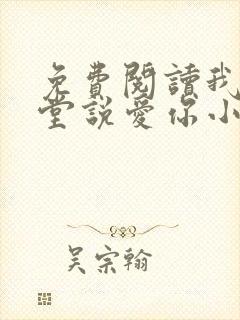 免費閱讀我
堂說愛你小
吳宗翰